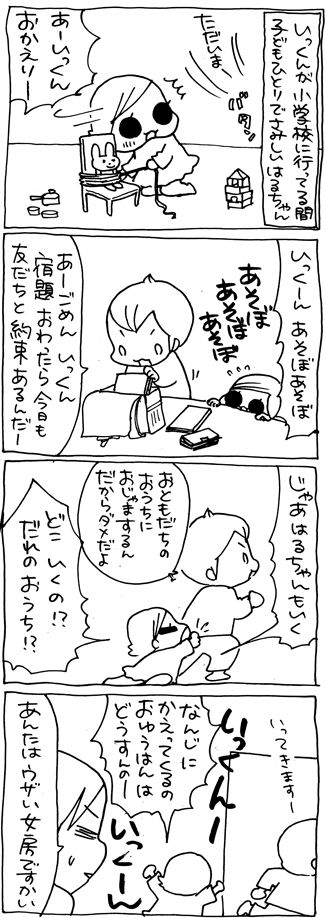 いっくんが小学校に行ってる間
子どもひとりでさみしいはるちゃん
ただいま
バタン
あーいっくん
おかえりー
いっくーん あそぼあそぼ
あそぼ
あそぼ
あそぼ
あーごめん いっくん
宿題 おわったら 今日も
友だちと約束あるんだー
じゃあはるちゃんもいく
おともだちの
おうちに
おじゃまするん
だからダメだよ
どこ いくの!?
だれの おうち!?
いってきますー
いっくんー
なんじに
かえってくるの
おゆうはんは
どうすんのー
いっくーん
あんたはウザい女房ですかい